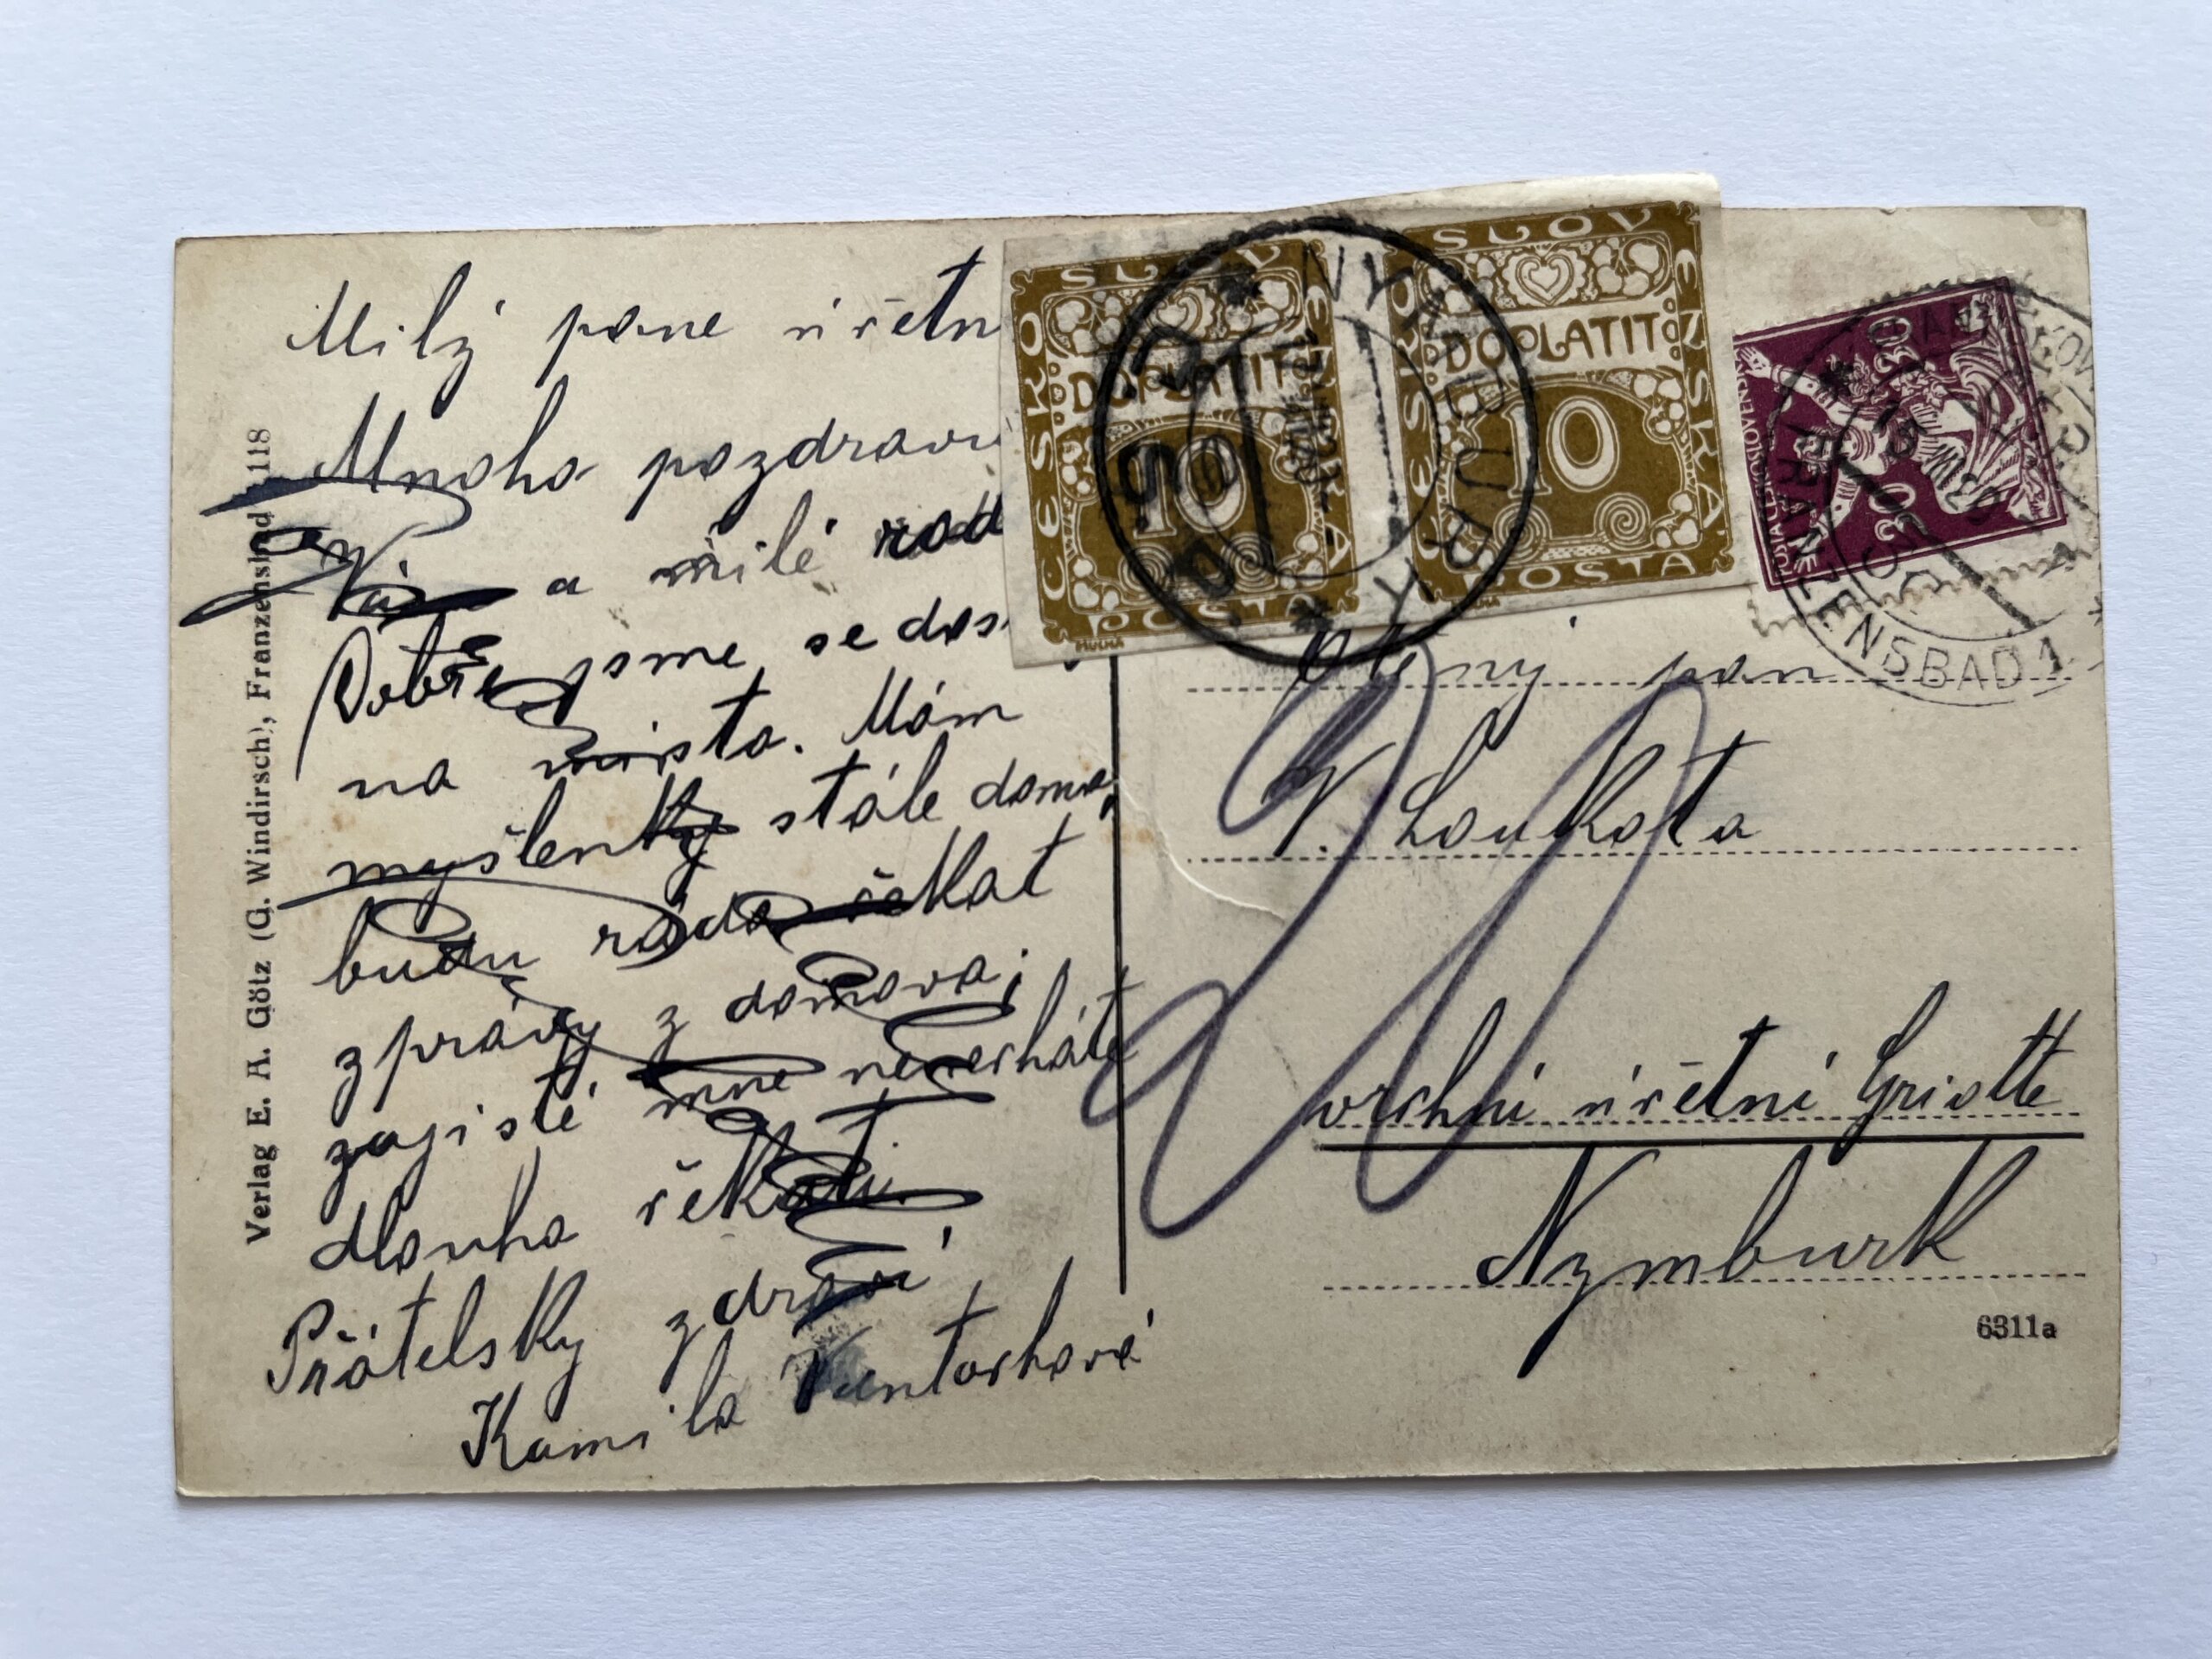 Milý pane účetn
Mnoho pozdravů
Vám a milé rod
Dobře jsme se dos
na místo. Mám
myšlenky stále doma,
budu ráda čekat
zprávy z domova;
zajisté mne nenecháte
dlouho čekati.
Přátelsky zdraví
Kamila
Verlag E. A. Götz (G. Windirsch), Franzensbad 118
ČESKO SLOVENSKÁ
DOPLATIT
10
POSTA
MUCHA
ČESKO SLOVENSKÁ
DOPLATIT
10
POSTA
NYMBURK
30 30
FRANZENSBAD 1
15 VIII
ctený pan
V. Loukota
20
vrchní účetní Griotte
Nymburk
6311a